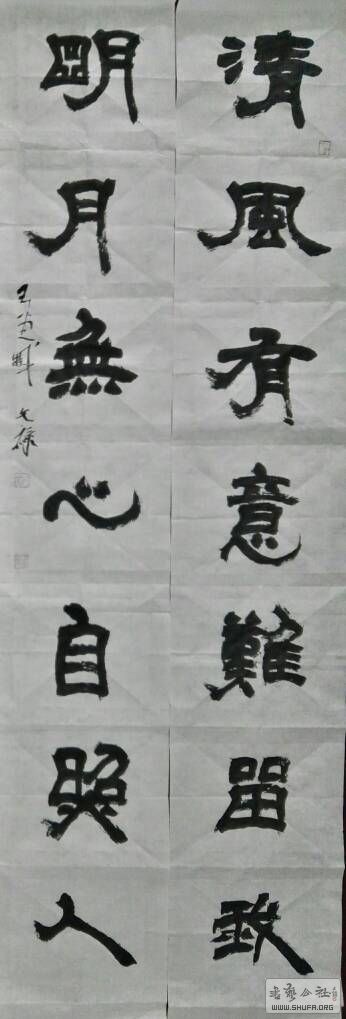 清風有意難留我
明月無心自照人
書藝公社
WWW.SHUFA.ORG